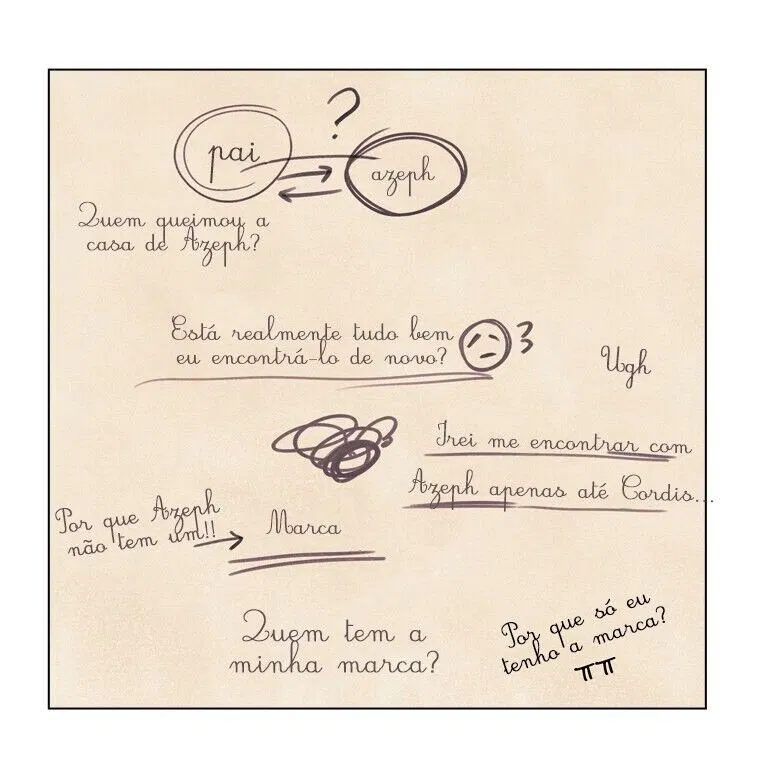 ?
pai
azeph
Quem queimou a
casa de Azeph?
Está realmente tudo bem
eu encontrá-lo de novo?
Ugh
Irei me encontrar com
Azeph apenas até Cordis...
Por que Azeph
não tem um!!
Marca
Quem tem a
minha marca?
Por que só eu
tenho a marca?
ㅠㅠ